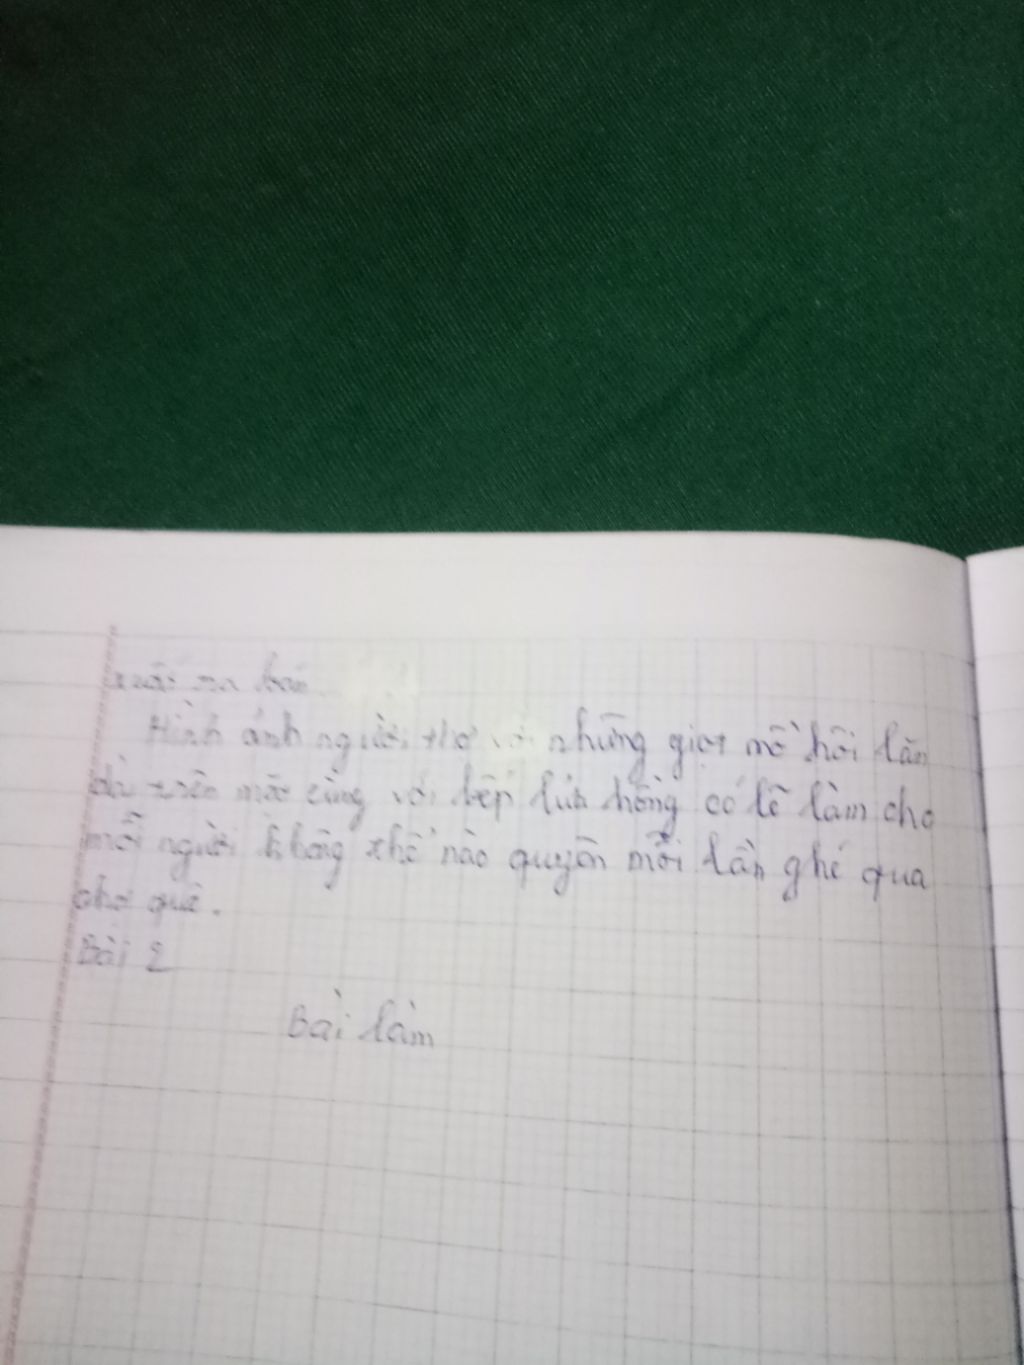 ra bán.
Hình ảnh người thợ với những giọt mồ hôi lăn
dài trên mặt cùng với bếp lửa hồng có lẽ làm cho
mỗi người không thể nào quyên mỗi lần ghé qua
chợ quê.
Bài 2
Bài làm